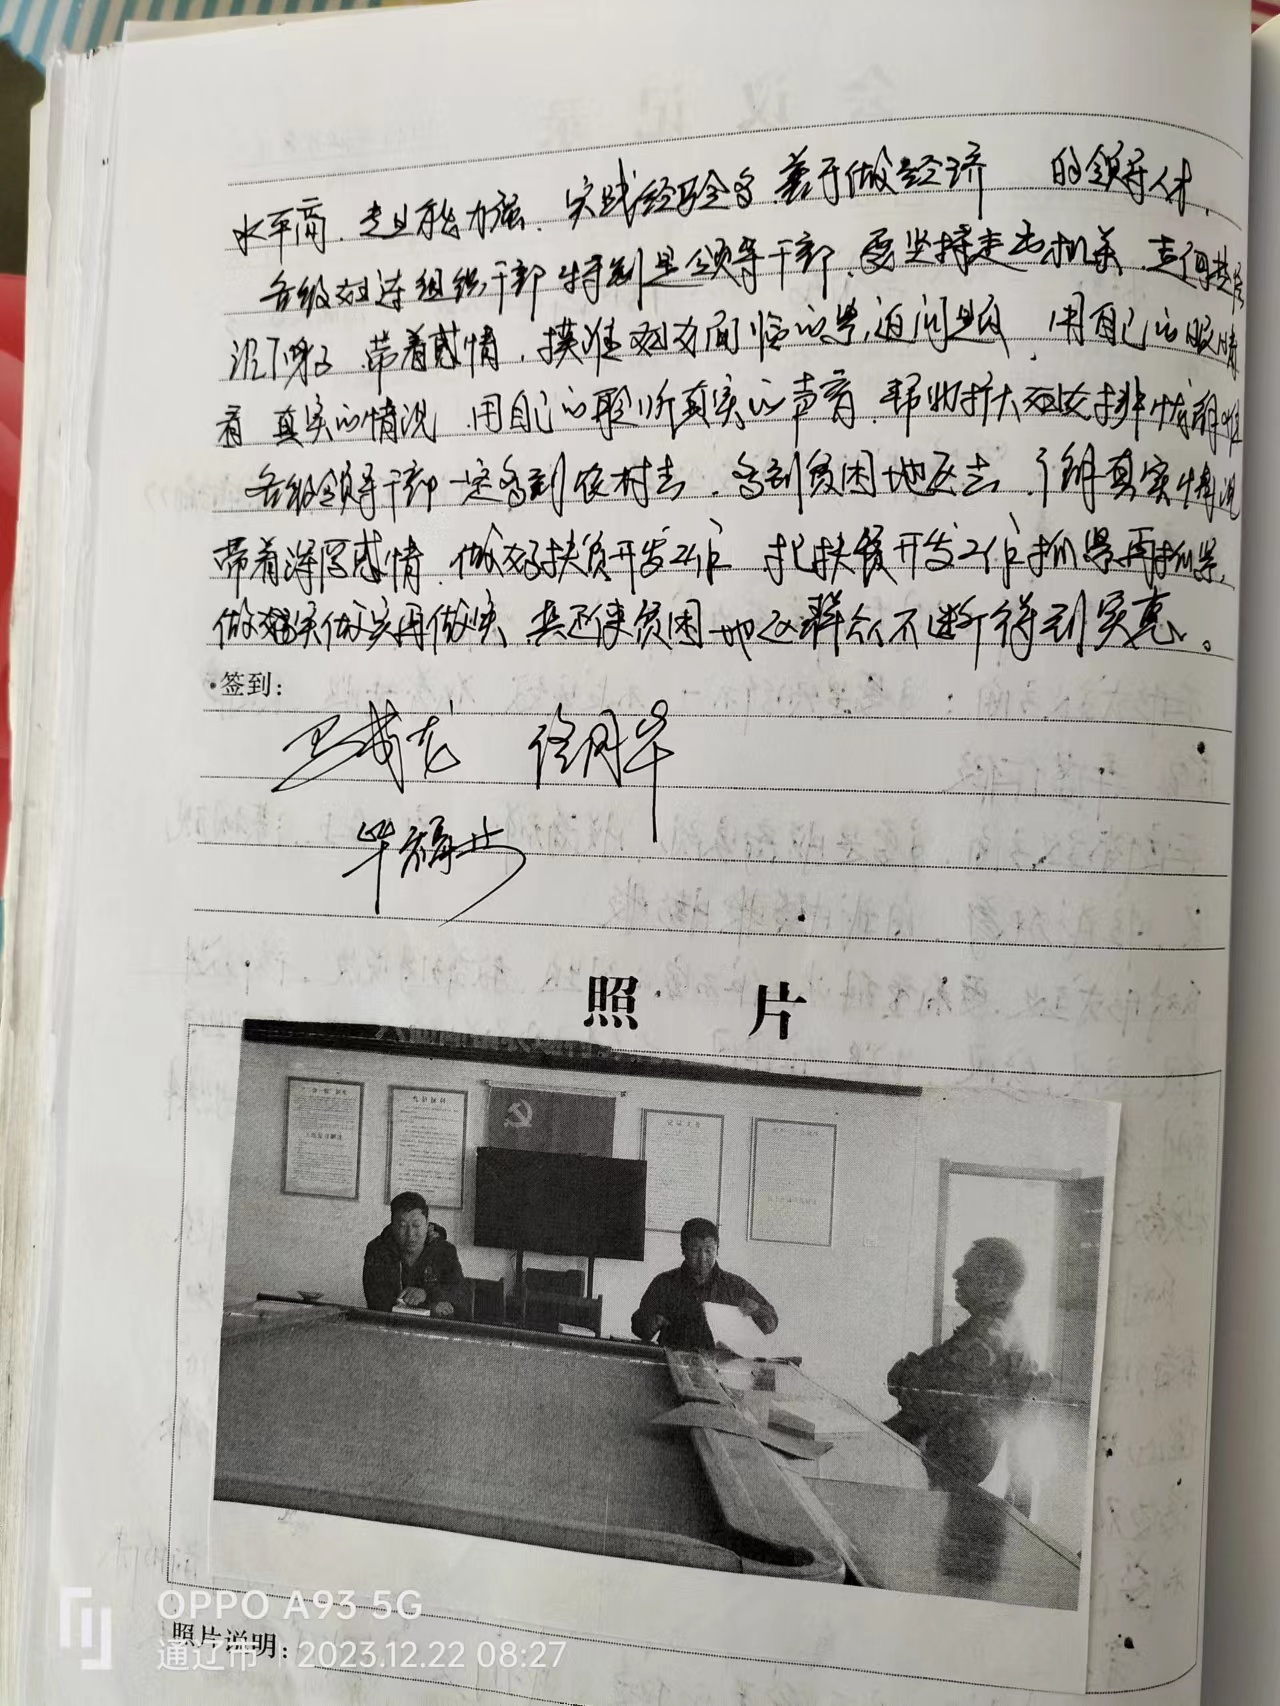 水平高、专业能力强、实践经验多、善于做经济 的领导人才。
各级 组织干部特别是领导干部,要坚持走出机关、走向基层
沉下身子 带着感情,摸准 面临的紧迫问题,用自己的眼睛
看真实的情况,用自己的耳听真实的声音,帮 扩大 排忧解难
各级领导干部一定多到农村去,多到贫困地区去,了解真实情况
带着深厚感情,做好扶贫开发工作,把扶贫开发工作抓紧再抓紧、
做 实做实再做实,真正使贫困地区群众不断得到实惠。
签到:
徐国华
毕福
照 片
照片说明:
OPPO A93 5G
通辽市 2023.12.22 08:27